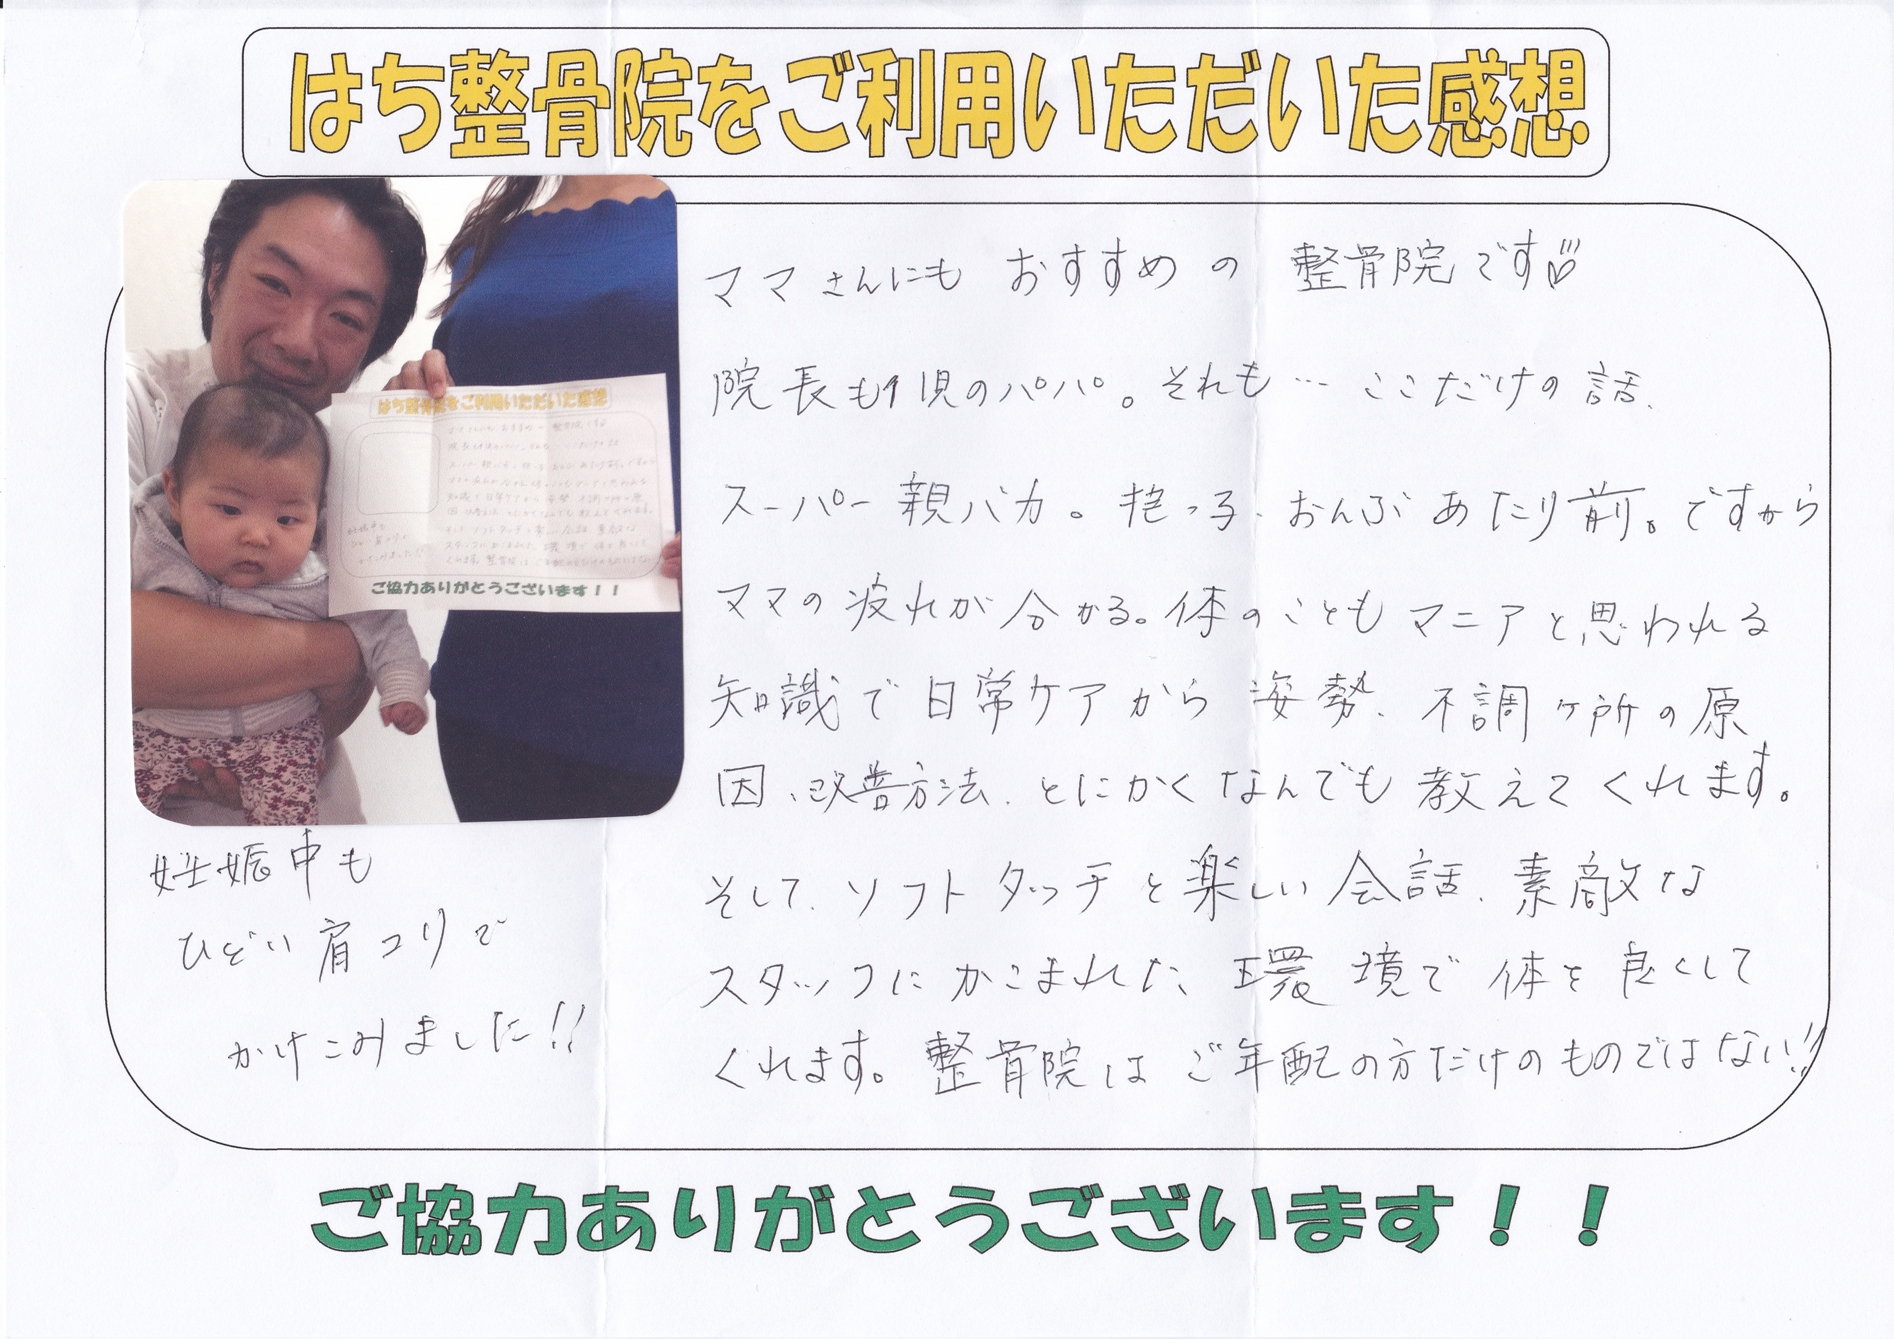 はち整骨院をご利用いただいた感想
ママさんにもおすすめの整骨院です♡
院長も1児のパパ。それも…ここだけの話、
スーパー親バカ。抱っ子、おんぶあたり前。ですから
ママの疲れが分かる。体のこともマニアと思われる
知識で日常ケアから姿勢、不調ヶ所の原
因、改善方法、とにかくなんでも教えてくれます。
そして、ソフトタッチと楽しい会話、素敵な
スタッフにかこまれた、環境で体を良くして
くれます。整骨院はご年配の方だけのものではない!!
妊娠中も
ひどい肩コリで
かけこみました!!
はち整骨院をご利用いただいた感想
ご協力ありがとうございます！！
ご協力ありがとうございます！！